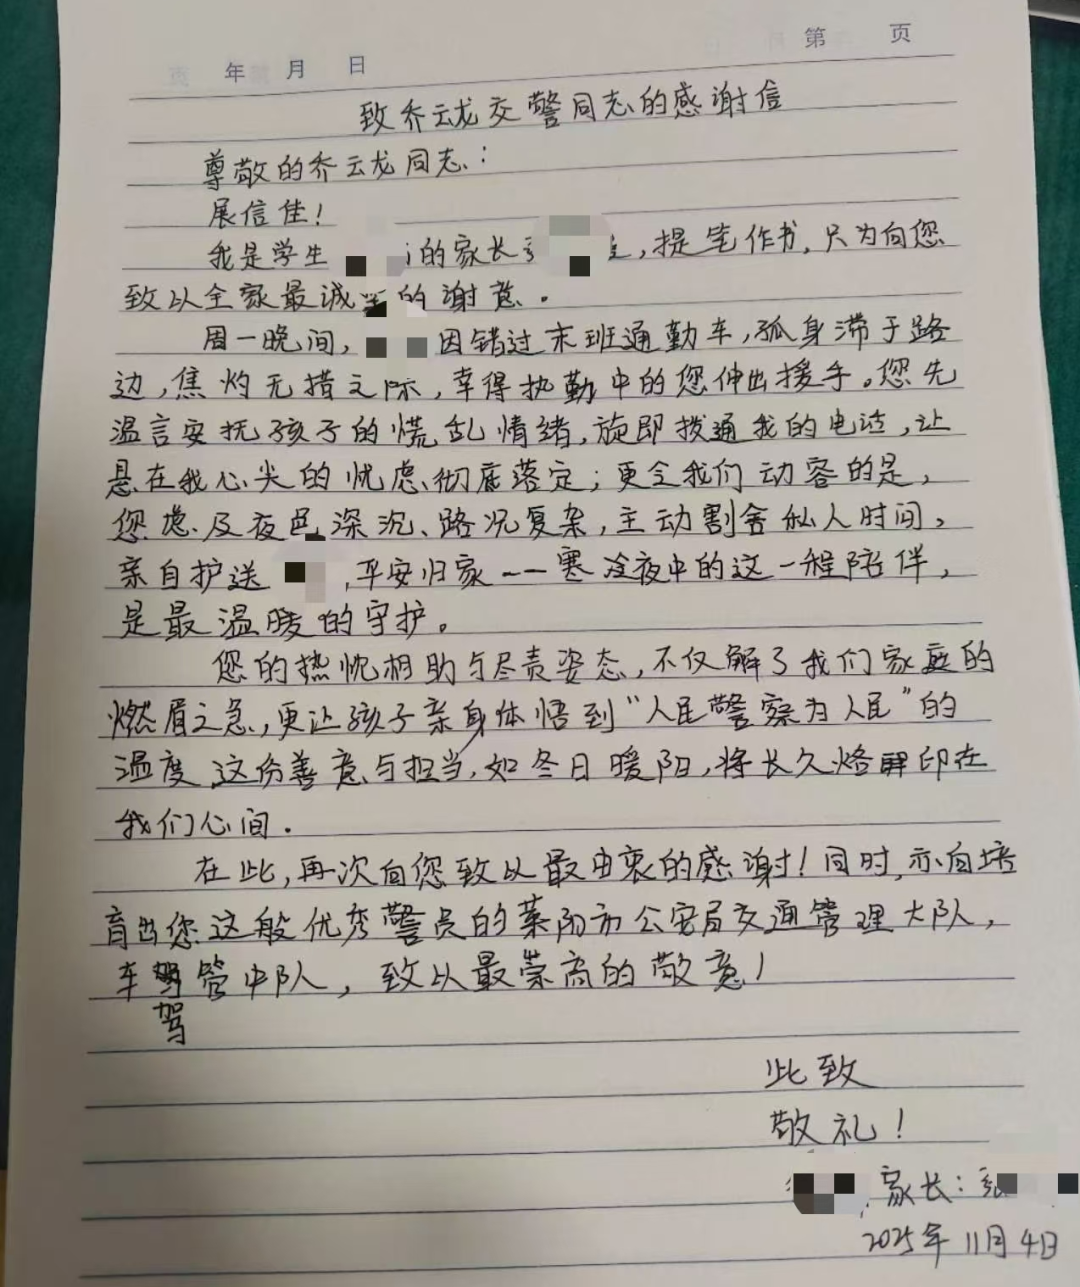 年 月 日 第 页
致乔云龙交警同志的感谢信
尊敬的乔云龙同志：
展信佳！
我是学生 的家长 ，提笔作书，只为向您
致以全家最诚 的谢意。
周一晚间， 因错过末班通勤车，孤身滞于路
边，焦灼无措之际，幸得执勤中的您伸出援手。您先
温言安抚孩子的慌乱情绪，旋即拨通我的电话，让
悬在我心尖的忧虑彻底落定；更令我们动容的是，
您虑及夜色深沉、路况复杂，主动割舍私人时间，
亲自护送 ，平安归家——寒冷夜中的这一程陪伴，
是最温暖的守护。
您的热忱相助与尽责姿态，不仅解了我们家庭的
燃眉之急，更让孩子亲身体悟到“人民警察为人民”的
温度，这份善意与担当，如冬日暖阳，将长久烙印在
我们心间。
在此，再次向您致以最由衷的感谢！同时，亦向培
育出您这般优秀警员的莱阳市公安局交通管理大队，
车驾管中队，致以最崇高的敬意！
驾
此致
敬礼！
家长：
2025年11月4日